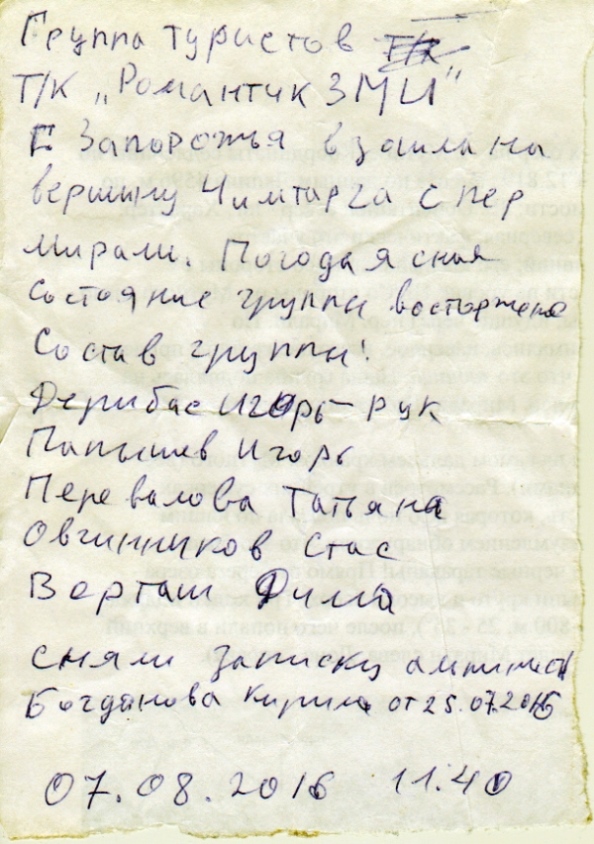 Группа туристов
Т/К "Романтик ЗМИ"
Г Запорожья взошла на
вершину Чимтарга с пер
Мирали. Погода ясная
Состояние группы восторжено
Состав группы:
Дерибас Игорь - рук
Папышев Игорь
Перевалова Татьяна
Овчинников Стас
Верташ Дима
сняли записку альпинист
Богданова Кирила от 25.07.2016
07.08.2016 11.40